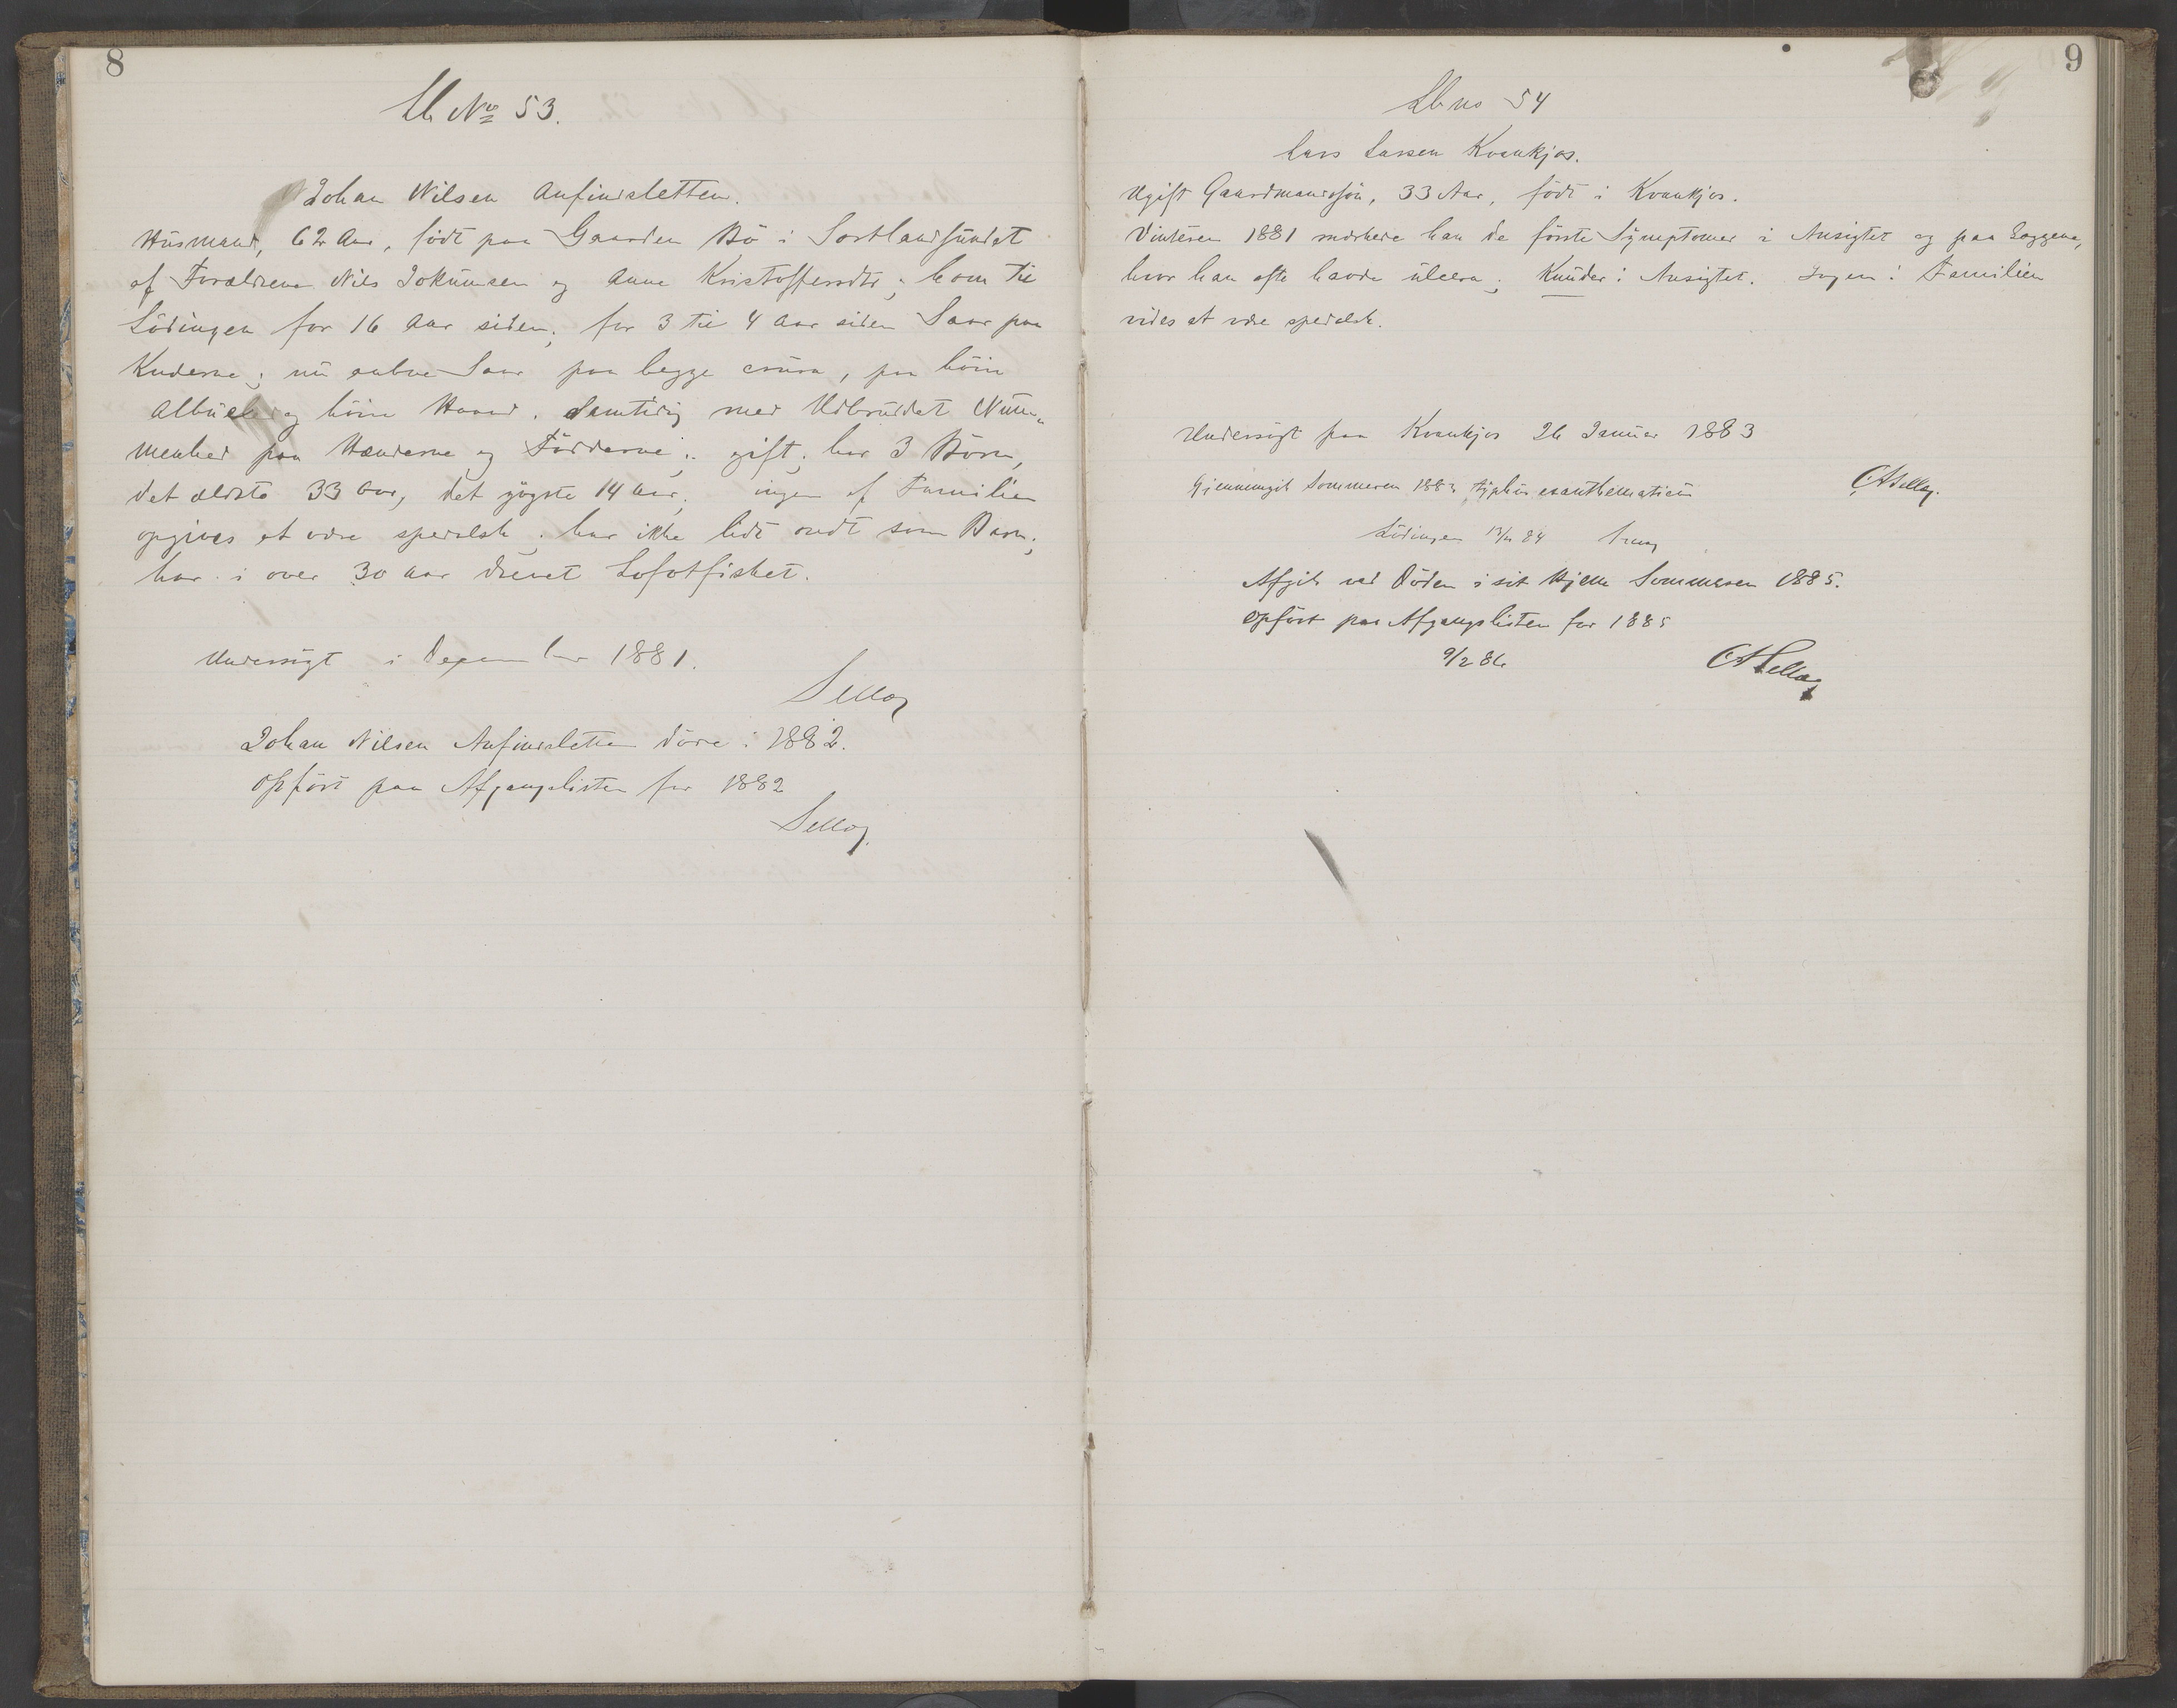 8
Lb Nº 53.
Johan Nilsen Anfindsletten.
Husmand, 62 Aar, født paa Gaarden Bö i Sortlandsundet
af Forældrene Nils Jokumsen og Anne Kristoffersdtr; kom til
Lödingen for 16 Aar siden; for 3 til 4 Aar siden Saar paa
Knderne; nu aabne Saar paa begge crura, paa höire
Albue og höire Haand. Samtidig med Udbruddet Num-
menhed paa Hænderne og Födderne; gift; har 3 Börn,
det ældste 33 Aar, det yngste 14 Aar; ingen af Familien
opgives at være spedalsk; har ikke lidt ondt som Barn;
har i over 30 Aar drevet Lofotfisket.
Undersögt i December 1881.
Selloy
Johan Nilsen Anfindsletten döde i 1882.
Opfört paa Afgangslisten for 1882
Selloy
9
Lb no 54
Lars Larsen Kvankjos.
Ugift Gaardmandssön, 33 Aar, födt i Kvankjos.
Vinteren 1881 mærkede han de förste Symptomer i Ansigtet og paa Læggene,
hvor han ofte havde ulcera; Knuder i Ansigtet. Ingen i Familien
vides at være spedalsk.
Undersögt paa Kvankjos 26 Januar 1883
CASelloy.
Gjennemgik Sommeren 1883 typhus exanthematicus
Lödingen 84
Afgik ved Döden i sit Hjem Sommeren 1885.
Opfört paa Afgangslisten for 1885
9/2 86 CASelloy